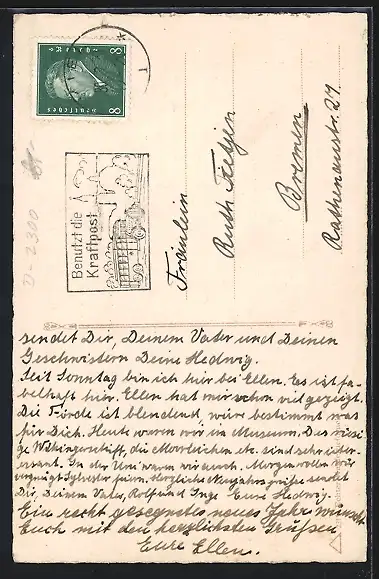 Deutsches Reich
8 8
Benutzt die
Kraftpost
D-2300
Fräulein
Ruth Tietjen
Bremen
Rathenaustr. 27
sendet Dir, Deinem Vater und Deinen
Geschwistern Deine Hedwig.
Seit Sonntag bin ich hier bei Ellen. Es ist fa-
belhaft hier. Ellen hat mir schon viel gezeigt.
Die Förde ist blendend, wäre bestimmt was
für Dich. Heute waren wir im Museum. Das riesi-
ge Wikingerschiff, die Moorleichen etc. sind sehr inter-
essant. In der Uni waren wir auch. Morgen wollen wir
vergnügt Sylvester feiern. Herzliche Neujahrsgrüße sendet
Dir, Deinem Vater, Rolf und Inge Eure Hedwig.
Ein recht gesegnetes neues Jahr wünscht
Euch mit den herzlichsten Grüßen
Eure Ellen.